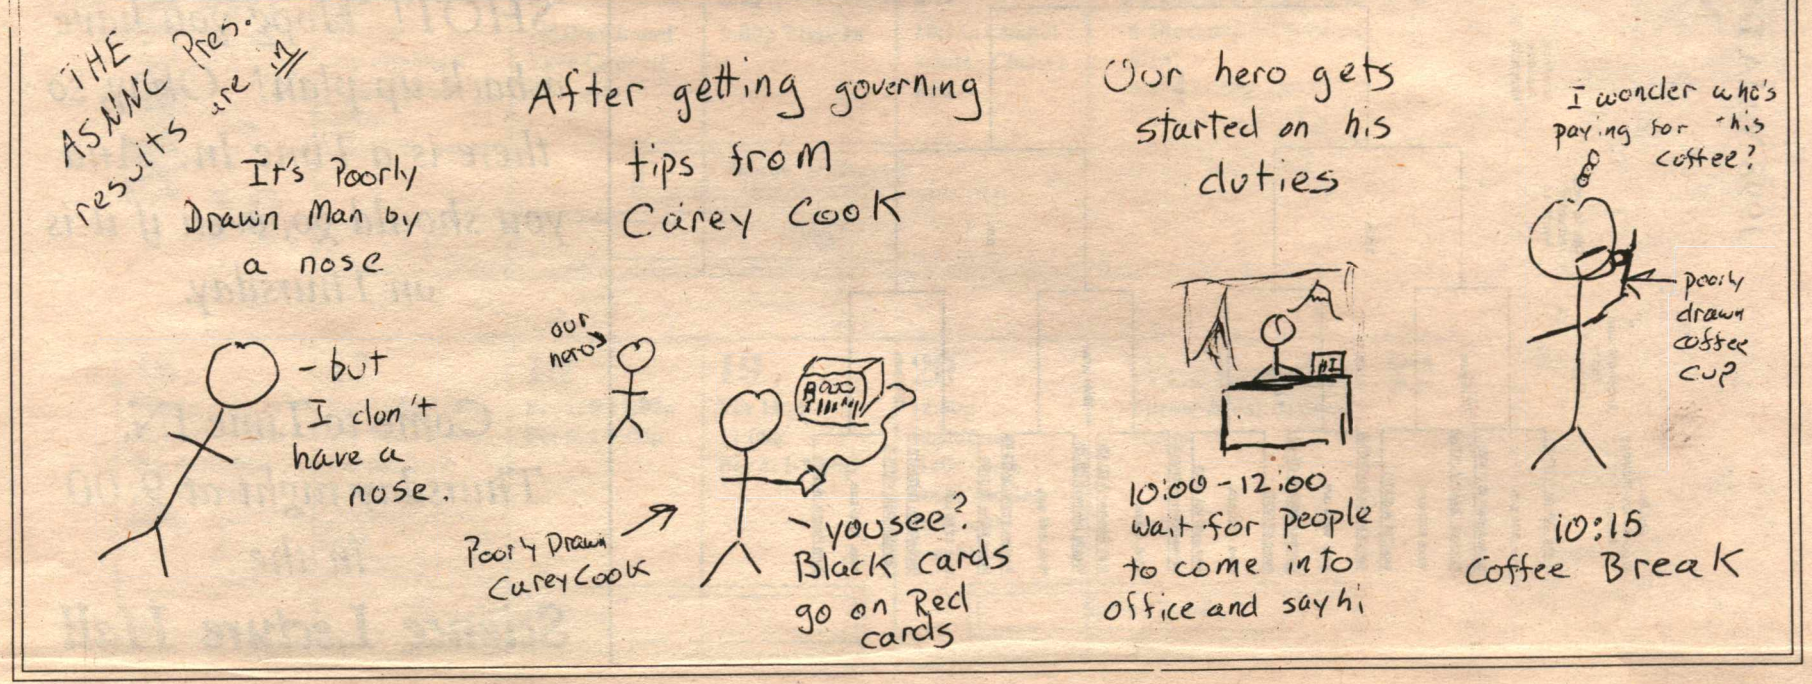 THE
ASNNC Pres.
results are in
It's Poorly
Drawn Man by
a nose
- but
I don't
have a
nose.
After getting governing
tips from
Carey Cook
our
hero
Poorly Drawn
Carey Cook
- you see?
Black cards
go on Red
cards
Our hero gets
started on his
duties
HI
10:00-12:00
Wait for people
to come into
office and say hi
I wonder who's
paying for this
coffee?
poorly
drawn
coffee
cup
10:15
Coffee Break